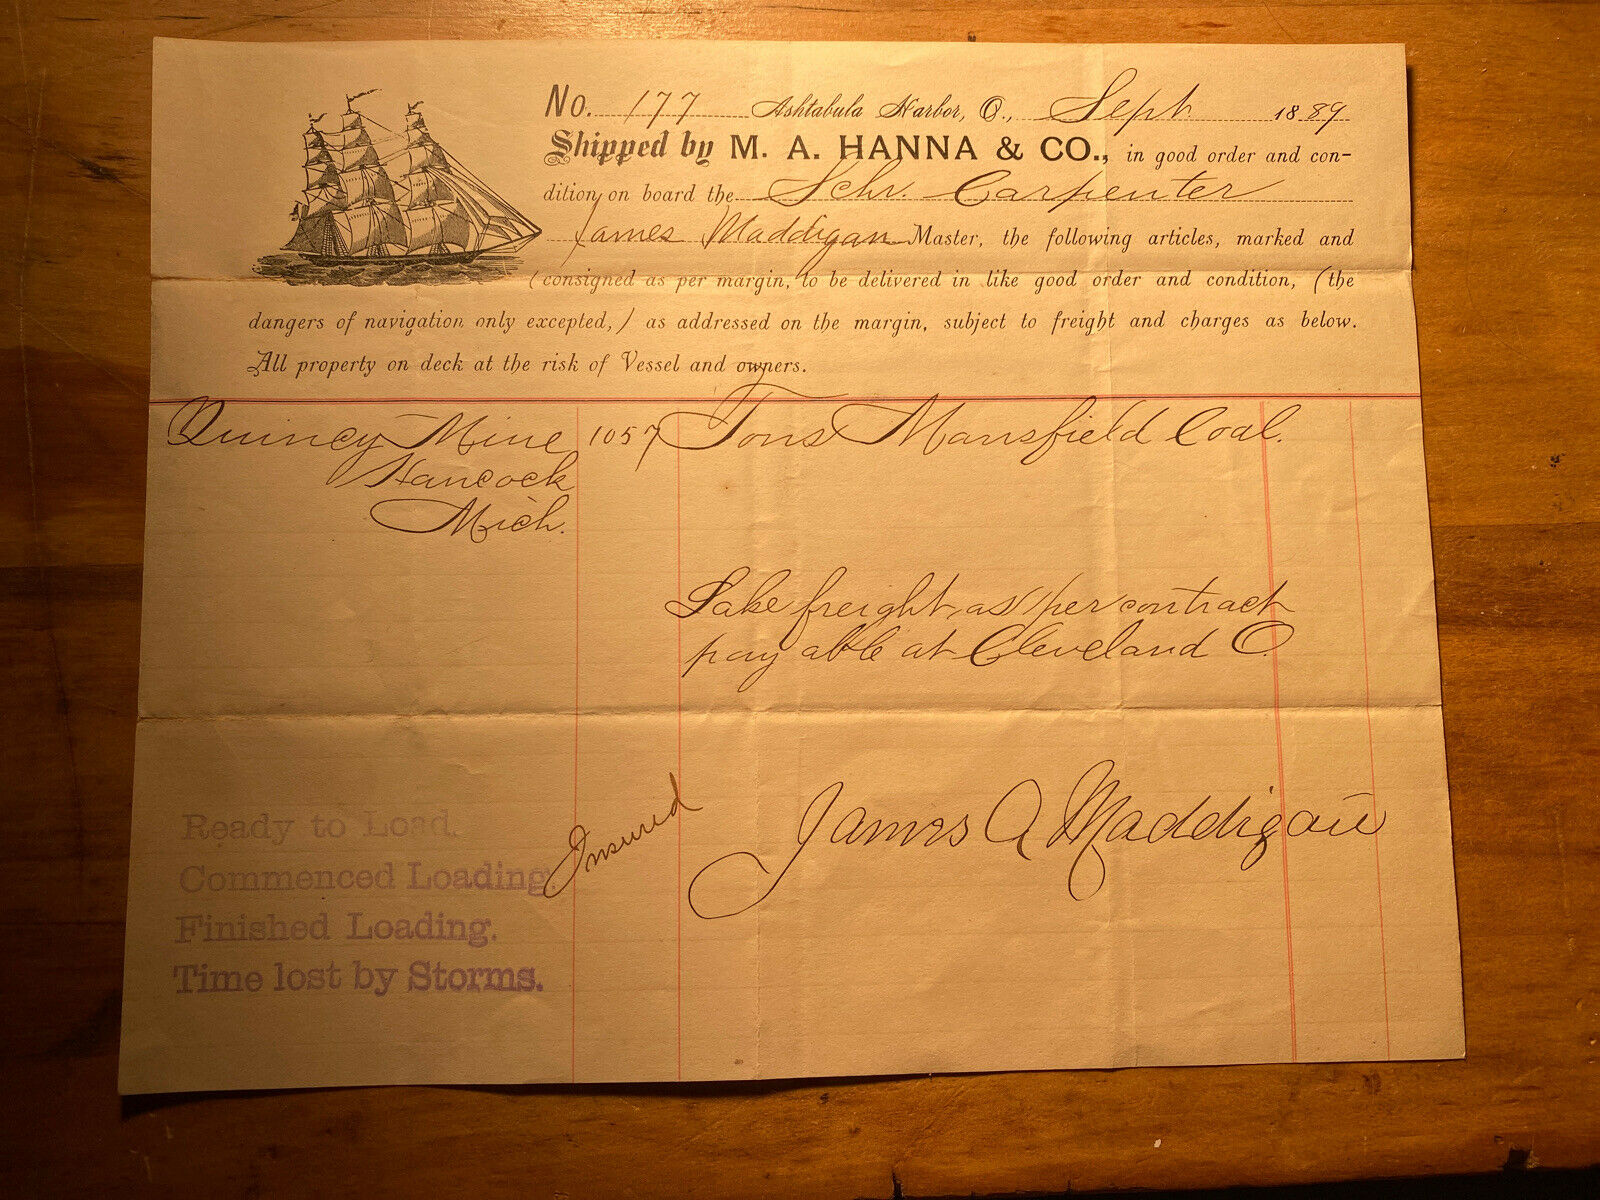 No. 177 Ashtabula Harbor, O., Sept. 1889
Shipped by M. A. HANNA & CO., in good order and con-
dition on board the Schr. Carpenter
James Maddigan Master, the following articles, marked and
(consigned as per margin, to be delivered in like good order and condition, (the
dangers of navigation only excepted,) as addressed on the margin, subject to freight and charges as below.
All property on deck at the risk of Vessel and owners.
Quincy Mine 1057 Tons Mansfield Coal.
Hancock
Mich.
Lake freight as per contract
payable at Cleveland O.
Insured
James A Maddigan
Ready to Load.
Commenced Loading.
Finished Loading.
Time lost by Storms.